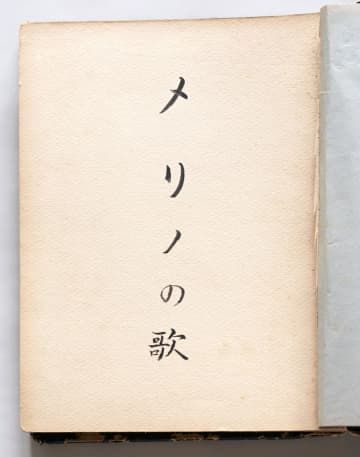 メリノの歌